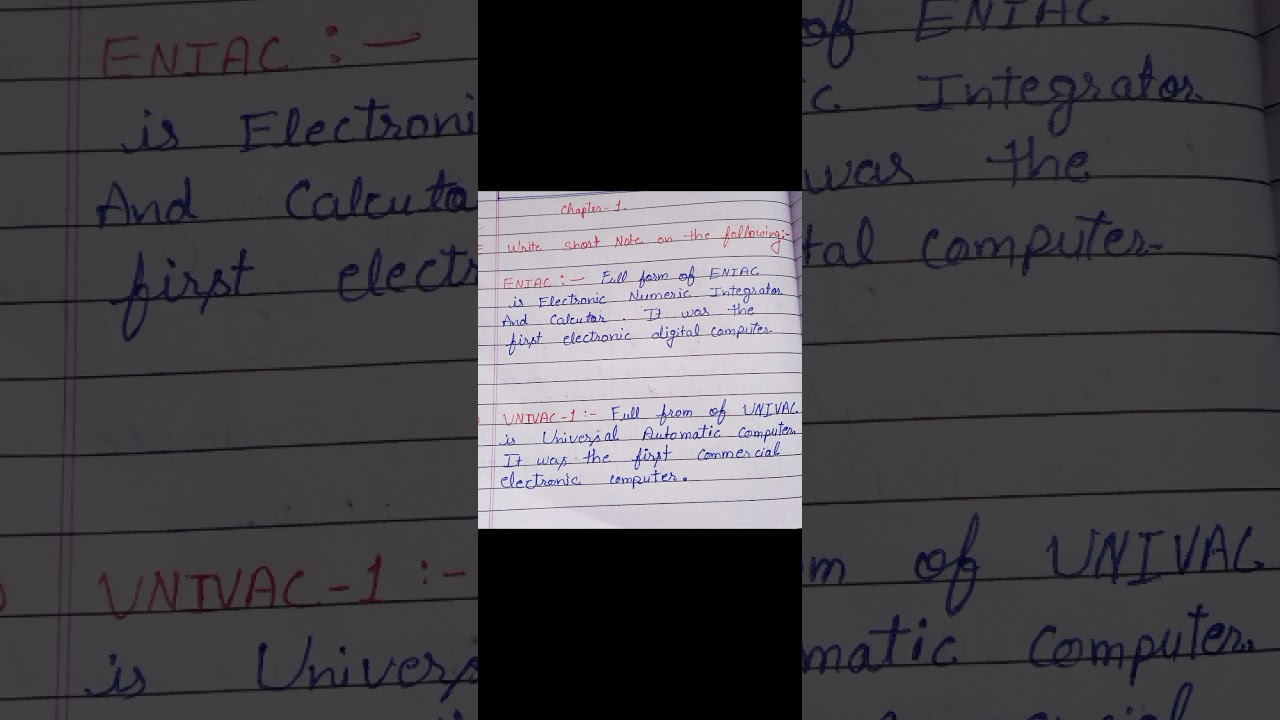 Chapter-1.
Write Short Note on the following:-
ENIAC :- Full form of ENIAC
is Electronic Numeric Integrator
And Calcutor. It was the
first electronic digital computer.
UNIVAC-1 :- Full from of UNIVAC
is Universal Automatic Computer.
It was the first commercial
electronic computer.